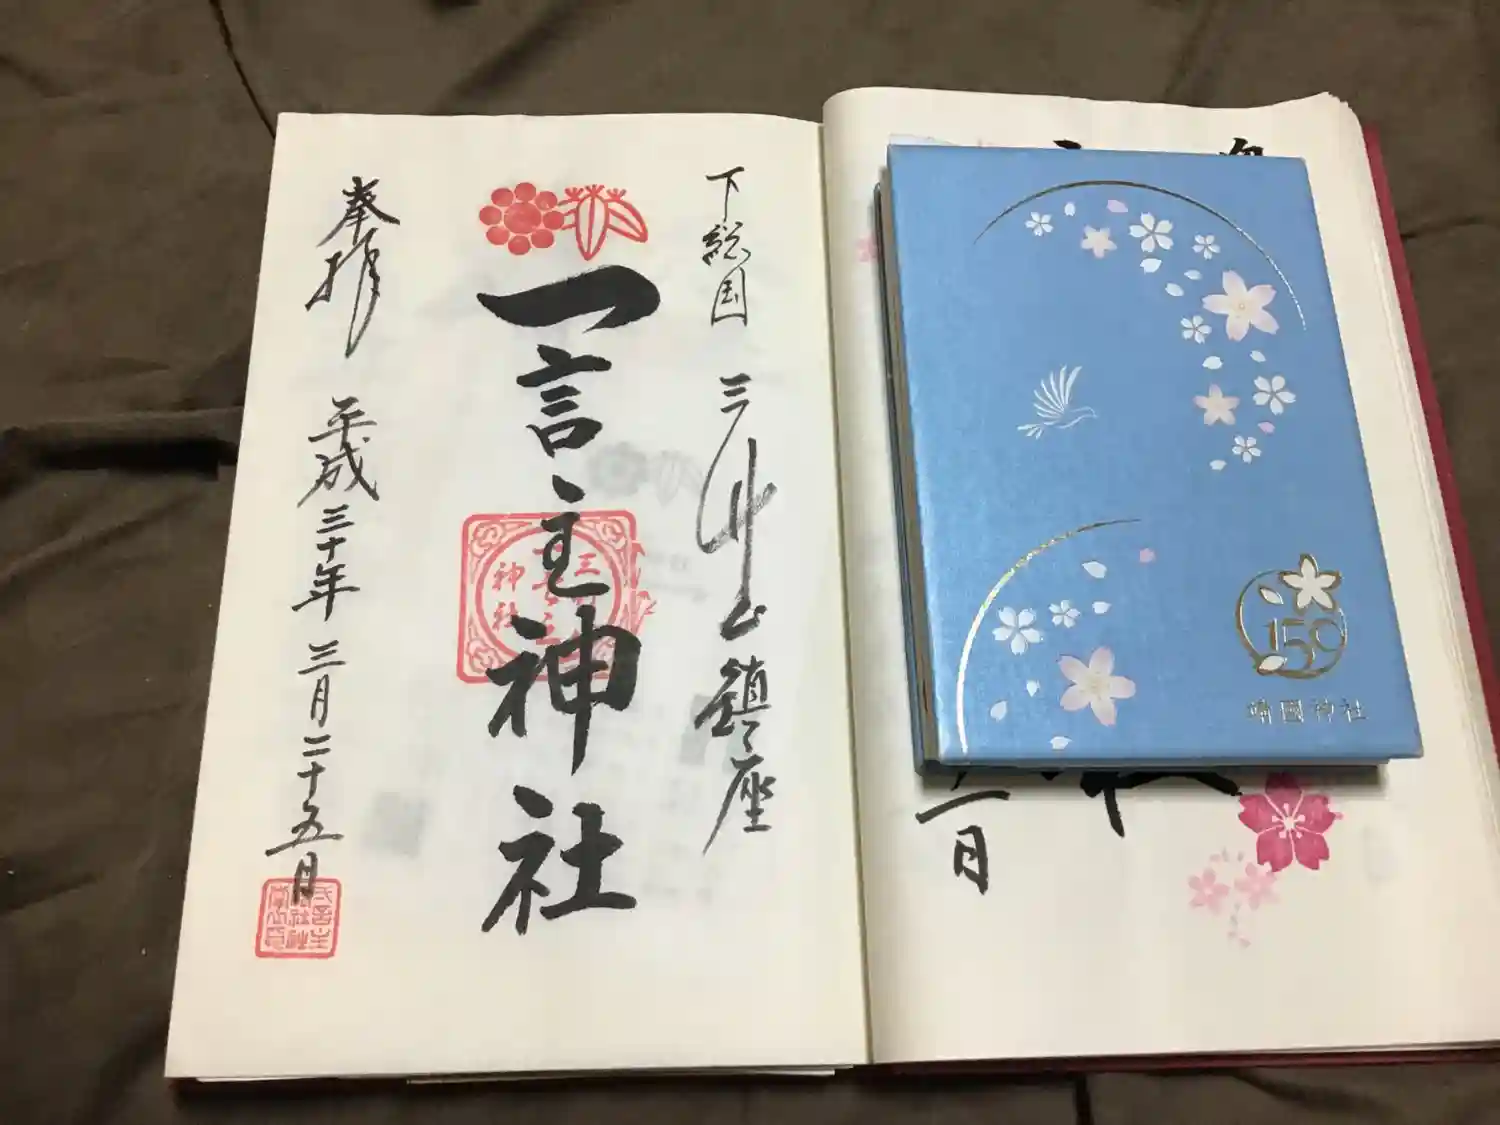 下総国 三竹山 鎮座
一言主神社
奉拝 平成三十年 三月二十五日
150
靖國神社
日